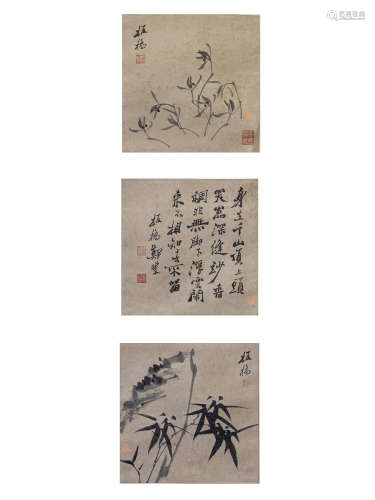 板橋
身在千山頂上頭
突嵒深縫妙香
稠非無腳下浮雲鬧
來不相知去不留
板橋鄭燮
板橋